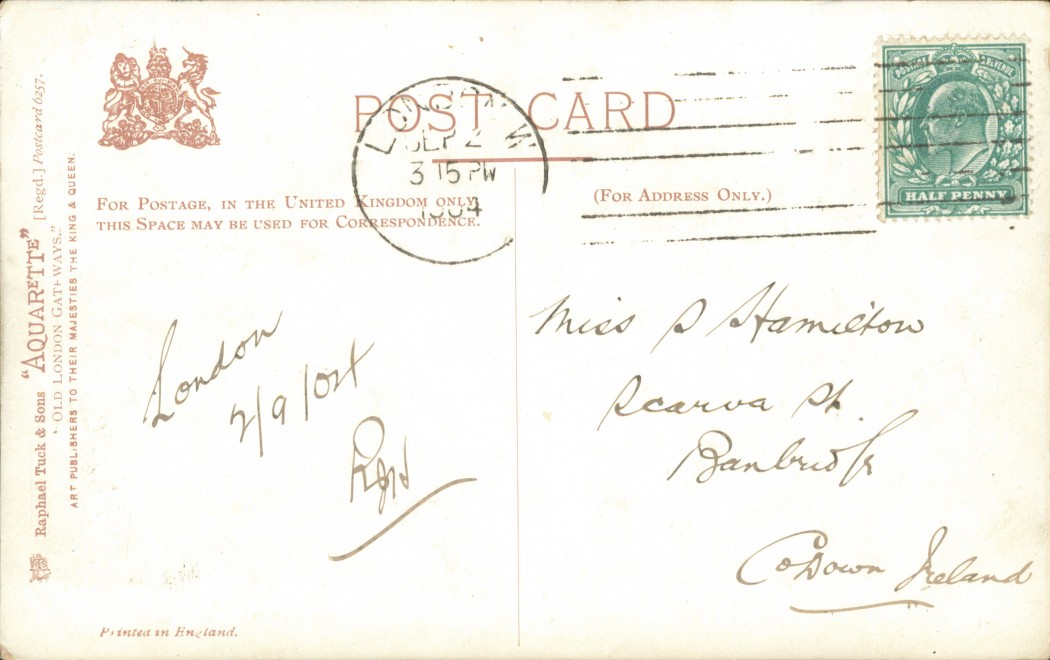 POST CARD
FOR POSTAGE, IN THE UNITED KINGDOM ONLY,
THIS SPACE MAY BE USED FOR CORRESPONDENCE.
(FOR ADDRESS ONLY.)
LONDON W
SEP 2
3 15 PM
1904
POSTAGE & REVENUE
HALF PENNY
Raphael Tuck & Sons "AQUARETTE" [Regd.] Postcard 6257.
"OLD LONDON GATEWAYS."
ART PUBLISHERS TO THEIR MAJESTIES THE KING & QUEEN.
London
2/9/04
Miss S Hamilton
Scarva St.
Banbridge
Co Down Ireland
Printed in England.